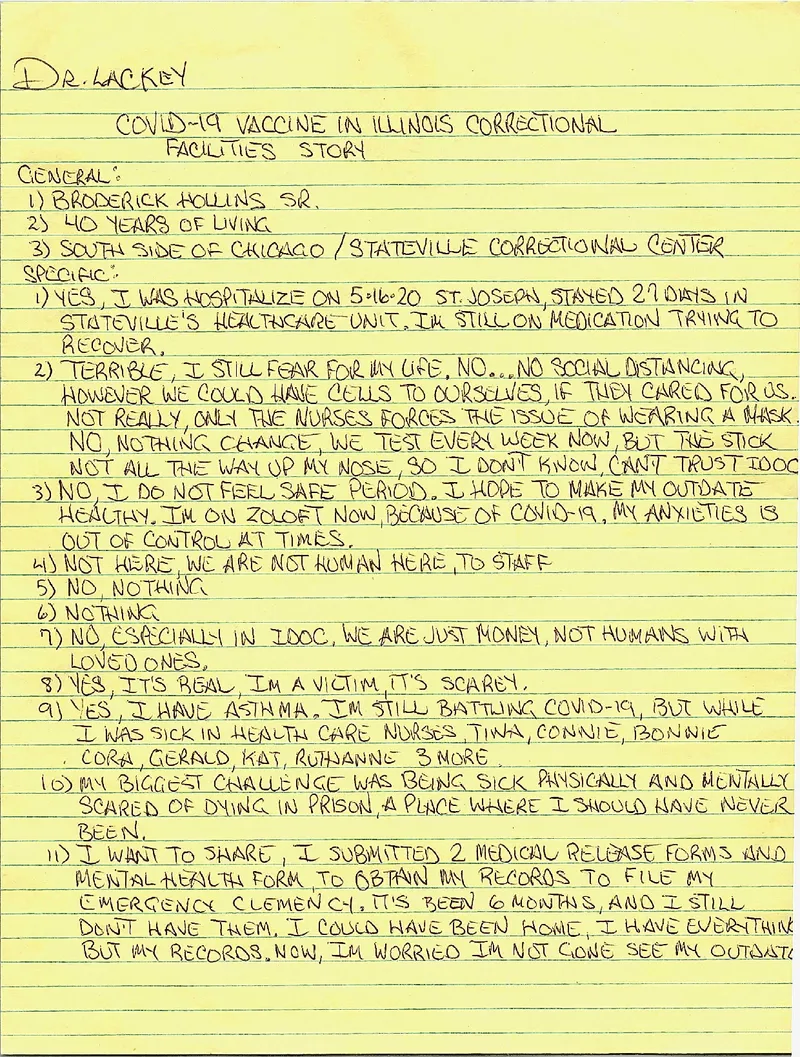 DR. LACKEY
COVID-19 VACCINE IN ILLINOIS CORRECTIONAL
FACILITIES STORY
GENERAL:
1) BRODERICK HOLLINS SR.
2) 40 YEARS OF LIVING
3) SOUTH SIDE OF CHICAGO / STATEVILLE CORRECTIONAL CENTER
SPECIFIC:
1) YES, I WAS HOSPITALIZE ON 5-16-20 ST. JOSEPH, STAYED 27 DAYS IN
STATEVILLE'S HEALTHCARE UNIT. IM STILL ON MEDICATION TRYING TO
RECOVER.
2) TERRIBLE, I STILL FEAR FOR MY LIFE. NO...NO SOCIAL DISTANCING,
HOWEVER WE COULD HAVE CELLS TO OURSELVES, IF THEY CARED FOR US.
NOT REALLY, ONLY THE NURSES FORCES THE ISSUE OF WEARING A MASK.
NO, NOTHING CHANGE, WE TEST EVERY WEEK NOW, BUT THE STICK
NOT ALL THE WAY UP MY NOSE, SO I DON'T KNOW, CAN'T TRUST IDOC
3) NO, I DO NOT FEEL SAFE PERIOD. I HOPE TO MAKE MY OUTDATE
HEALTHY. IM ON ZOLOFT NOW, BECAUSE OF COVID-19. MY ANXIETIES IS
OUT OF CONTROL AT TIMES.
4) NOT HERE, WE ARE NOT HUMAN HERE, TO STAFF
5) NO, NOTHING
6) NOTHING
7) NO, ESPECIALLY IN IDOC. WE ARE JUST MONEY, NOT HUMANS WITH
LOVED ONES.
8) YES, IT'S REAL, IM A VICTIM, IT'S SCAREY.
9) YES, I HAVE ASTHMA. IM STILL BATTLING COVID-19, BUT WHILE
I WAS SICK IN HEALTH CARE NURSES, TINA, CONNIE, BONNIE
CORA, GERALD, KAT, RUTHANNE 3 MORE.
10) MY BIGGEST CHALLENGE WAS BEING SICK PHYSICALLY AND MENTALLY
SCARED OF DYING IN PRISON, A PLACE WHERE I SHOULD HAVE NEVER
BEEN.
11) I WANT TO SHARE, I SUBMITTED 2 MEDICAL RELEASE FORMS AND
MENTAL HEALTH FORM, TO OBTAIN MY RECORDS TO FILE MY
EMERGENCY CLEMENCY. IT'S BEEN 6 MONTHS, AND I STILL
DON'T HAVE THEM. I COULD HAVE BEEN HOME, I HAVE EVERYTHIN
BUT MY RECORDS. NOW, IM WORRIED IM NOT GONE SEE MY OUTDAT